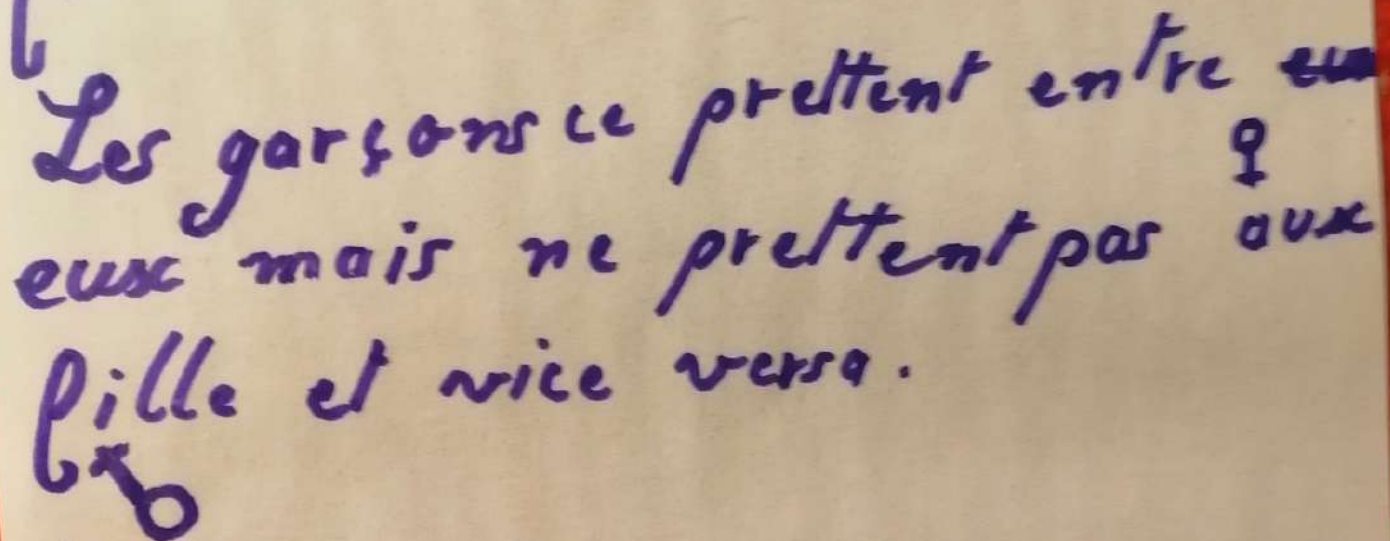 Les garçons ce prettent entre
eux mais ne prettent pas aux
fille et vice versa.